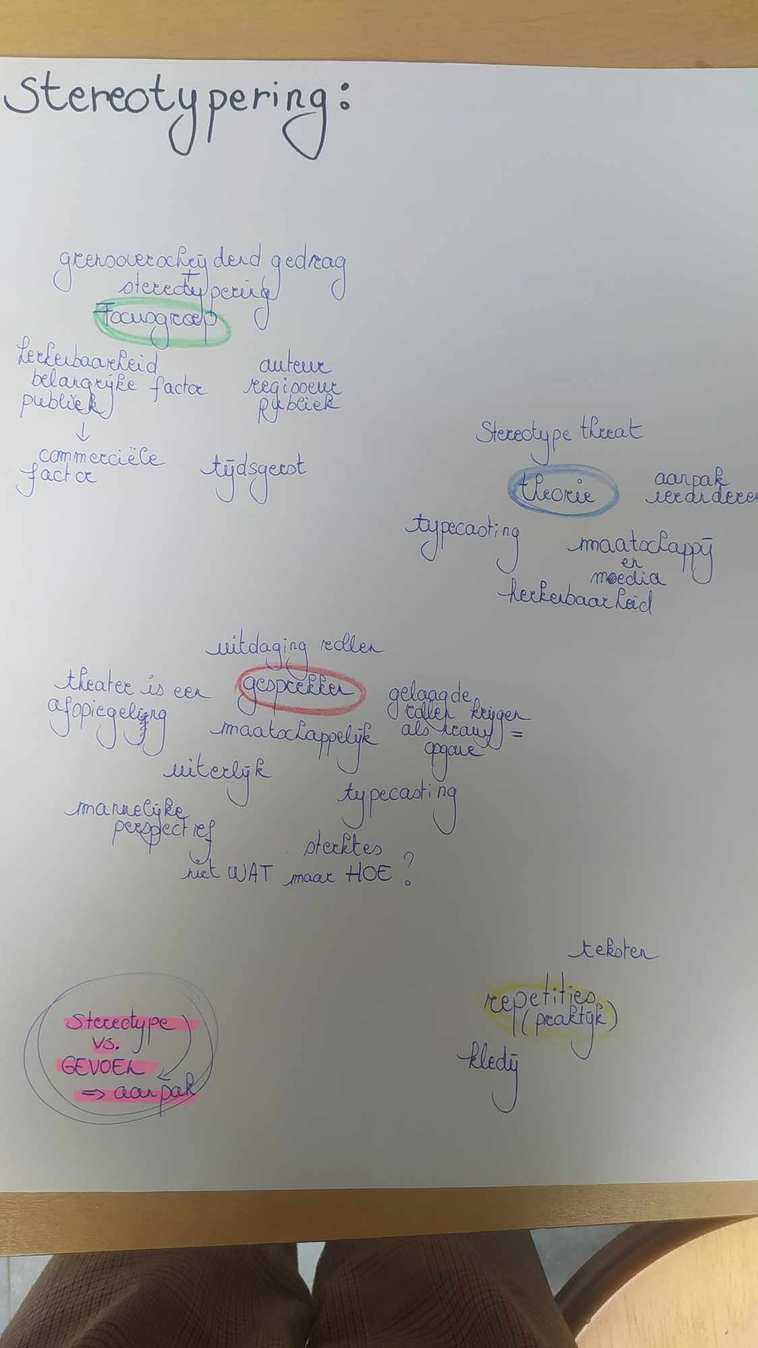 Stereotypering:
grensoverschrijdend gedrag
stereotypering
Focusgroep
herkenbaarheid
belangrijke factor
publiek
↓
commerciële
factor
auteur
regisseur
publiek
tijdsgeest
Stereotype threat
theorie
aanpak
veranderen
typecasting
maatschappij
en
media
herkenbaarheid
uitdaging rollen
gesprekken
theater is een
afspiegeling
gelaagde
rollen krijgen
als vrouw =
opgave
maatschappelijk
uiterlijk
typecasting
mannelijke
perspectief
sterktes
niet WAT maar HOE?
teksten
repetities
(praktijk)
kledij
Stereotype
vs.
GEVOEL
=> aanpak